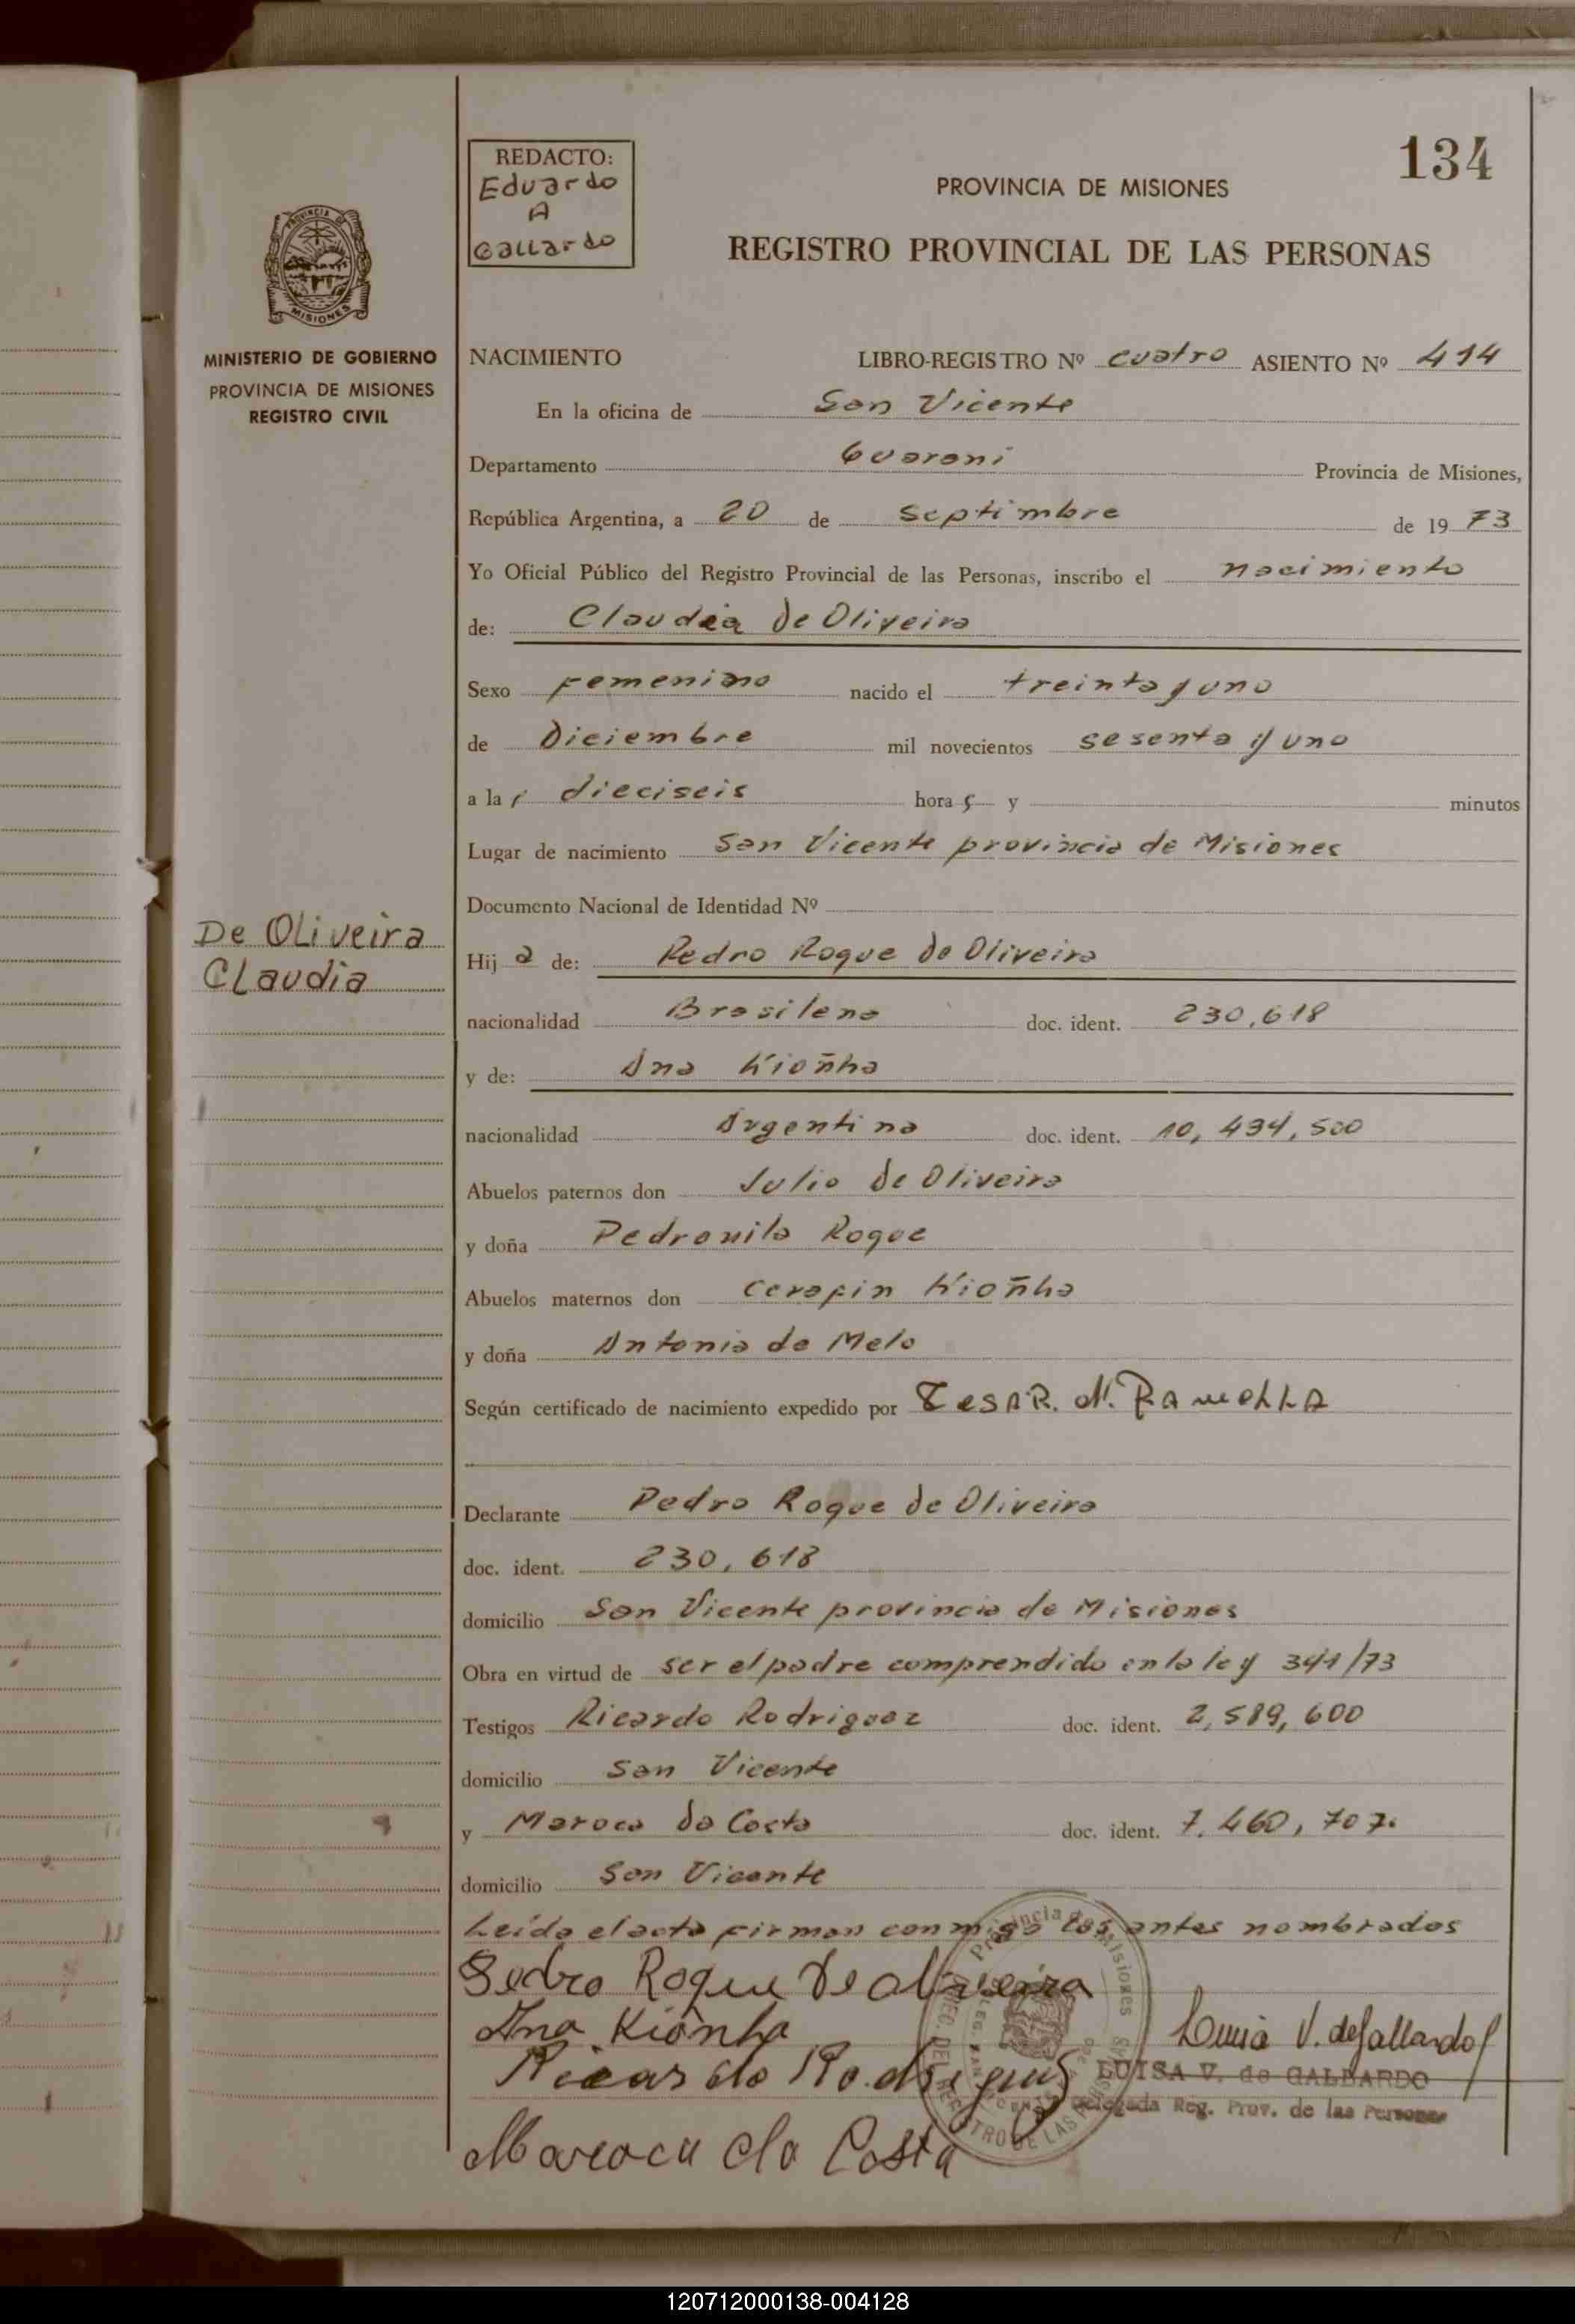 134
REDACTO:
Eduardo
A
Gallardo
PROVINCIA DE MISIONES
REGISTRO PROVINCIAL DE LAS PERSONAS
PROVINCIA DE
MISIONES
MINISTERIO DE GOBIERNO
PROVINCIA DE MISIONES
REGISTRO CIVIL
NACIMIENTO LIBRO-REGISTRO Nº cuatro ASIENTO Nº 414
En la oficina de San Vicente
Departamento Guarani Provincia de Misiones,
República Argentina, a 20 de Septimbre de 1973
Yo Oficial Público del Registro Provincial de las Personas, inscribo el nacimiento
de: Claudia De Oliveira
Sexo Femenino nacido el treinta y uno
de Diciembre mil novecientos sesenta y uno
a las dieciseis horas y minutos
Lugar de nacimiento San Vicente provincia de Misiones
Documento Nacional de Identidad Nº
De Oliveira
Claudia
Hija de: Pedro Roque de Oliveira
nacionalidad Brasilena doc. ident. 230,618
y de: Ana Kioñha
nacionalidad Argentina doc. ident. 10,434,500
Abuelos paternos don Julio de Oliveira
y doña Pedronila Roque
Abuelos maternos don Cerafin Kioñha
y doña Antonia de Melo
Según certificado de nacimiento expedido por Cesar. M. Ramella
Declarante Pedro Roque de Oliveira
doc. ident. 230,618
domicilio San Vicente provincia de Misiones
Obra en virtud de ser el padre comprendido en la ley 341/73
Testigos Ricardo Rodriguez doc. ident. 2,589,600
domicilio San Vicente
y Maroca da Costa doc. ident. 7.460,707.
domicilio San Vicente
Leída el acta firman conmigo los antes nombrados
Pedro Roque de oliveira
Ana Kionha
Ricardo Rodrigues
Maroca da Costa
Luisa V. de Gallardo
LUISA V. de GALLARDO
Delegada Reg. Prov. de las Personas
Provincia de Misiones
DIREC. DEL REGISTRO DE LAS PERSONAS
120712000138-004128